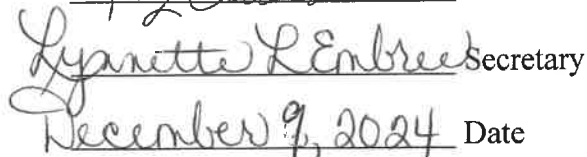 Lyanette L Embree Secretary
December 9, 2024 Date